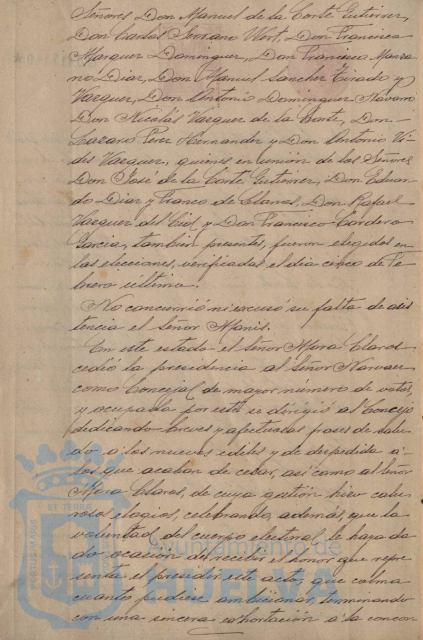 Señores Don Manuel de la Corte Gutierrez,
Don Carlos Serrano Wert, Don Francisco
Marquez Dominguez, Don Francisco Manza
no Diaz, Don Manuel Sanchez Tirado y
Vazquez, Don Antonio Dominguez Navarro
Don Nicolás Vazquez de la Corte, Don
Lazaro Perez Hernandez y Don Antonio Vi-
des Vazquez, quienes en union de los Señores
Don José de la Corte Gutierrez, Don Eduar
do Diaz y Franco de Llanos, Don Rafael
Vazquez del Cid, y Don Francisco Cordero
Garcia, tambien presentes, fueron elegidos en
las elecciones, verificadas el dia cinco de Fe
brero ultimo.
No concurrió ni excusó su falta de asis
tencia el Señor
En este estado el Señor Mora Claros
cedió la presidencia al Señor Narvaez
como Concejal de mayor número de votos,
y ocupada por este se dirigió al Concejo
dedicando breves y afectuosas frases de salu
do a los nuevos ediles y de despedida a
los que acaban de cesar, asi como al Señor
Mora Claros, de cuya gestión hizo calu
rosos elogios, celebrando, además, que la
voluntad del cuerpo electoral le haya da
do ocasión a recibir el honor que repre
senta el presidir este acto, que colma
cuanto pudiese ambicionar, terminando
con una sincera exhortación a la concor
Ayuntamiento de
HUELVA
PORTUS MARIS
ET TERRE